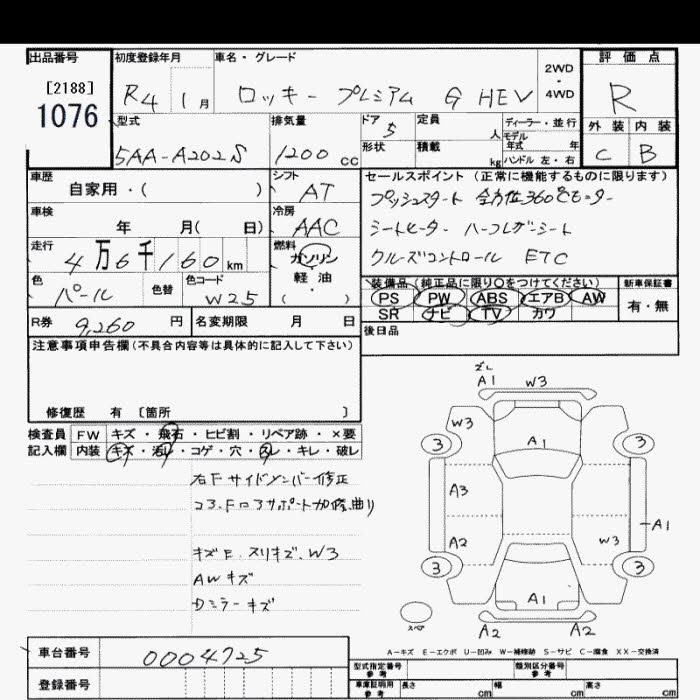 出品番号 初度登録年月 車名・グレード 評価点
[2188]
1076
R4 1月 ロッキー プレミアム G HEV 2WD・4WD R
型式 排気量 ドア 定員 ディーラー・並行 外装 内装
5AA-A202S 1200cc 5 人 モデル年式 年
形状 積載 kg ハンドル 左・右 C B
車歴 シフト セールスポイント (正常に機能するものに限ります)
自家用・( ) AT プッシュスタート 全方位360°モニター
車検 冷房
年 月( 日) AAC シートヒーター ハーフレザーシート
走行 燃料
4万6千160km ガソリン クルーズコントロール ETC
色 色替 色コード 軽・油
パール W25 ( )
装備品 (純正品に限り○をつけてください) 新車保証書
PS PW ABS エアB AW 有・無
SR ナビ TV カワ
R券 9,260円 名変期限 月 日 後日品
注意事項申告欄(不具合内容等は具体的に記入して下さい)
修復歴 有 [箇所 ]
検査員 FW キズ・飛石・ヒビ割・リペア跡・×要
記入欄 内装 キズ・汚レ・コゲ・穴・スレ・キレ・破レ
右Fサイドメンバー修正
コアサポート加修、曲り
キズE、スリキズ、W3
AWキズ
Dミラーキズ
ズレ
A1 W3
W3
3 3
A1
A3
A1
A2 W3
3 3
A1
スペア
A2 A2
A-キズ E-エクボ U-凹み W-補修跡 S-サビ C-腐食 XX-交換済
車台番号 0004725
登録番号
型式指定番号 参考 類別区分番号 参考
車庫証明用 参考 長さ cm 幅 cm 高さ cm